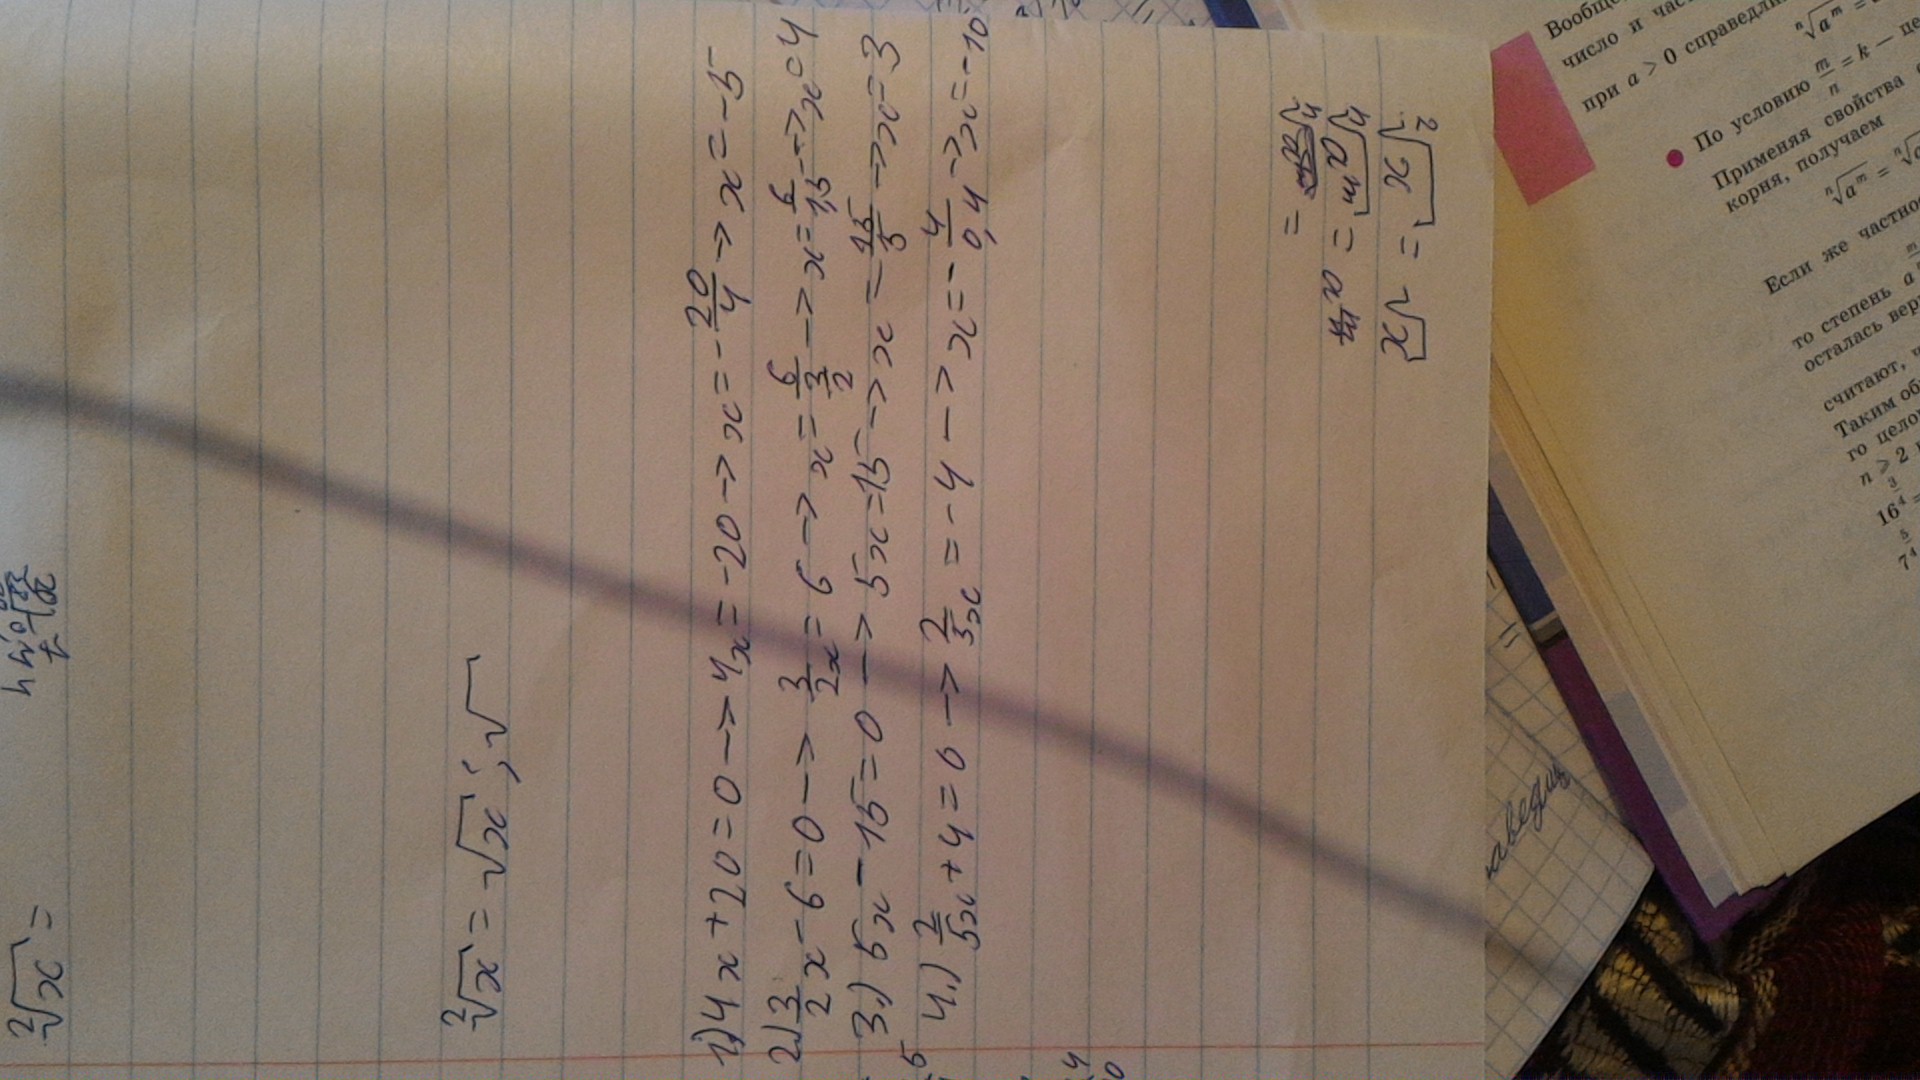 ²√x =
²√x = √x ; √
1.) 4x + 20 = 0 —> 4x = -20 —> x = -20/4 —> x = -5
2.) 3/2 x - 6 = 0 —> 3/2x = 6 —> x = 6/(3/2) —> x = 6/1,5 —> x = 4
3.) 5x - 15 = 0 —> 5x = 15 —> x = 15/5 —> x = 3
4.) 2/5x + 4 = 0 —> 2/5x = -4 —> x = -4/0,4 —> x = -10
=
ⁿ√aᵐ = a^(m/n)
²√x = √x
Вообще
число и час
при a > 0 справедли
ⁿ√aᵐ =
По условию m/n = k — це
Применяя свойства
корня, получаем
ⁿ√aᵐ = ⁿ√
Если же частно
то степень a
осталась вер
считают, ч
Таким об
го цело
n ⩾ 2
16^(3/4) =
7^(5/4)
аведли